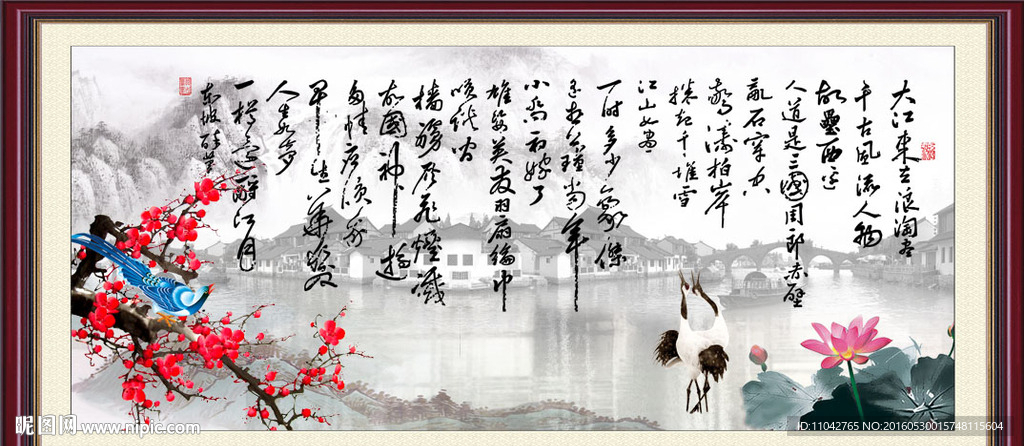 大江東去浪淘尽
千古風流人物
故壘西边
人道是三國周郎赤壁
乱石穿空
惊濤拍岸
捲起千堆雪
江山如画
一时多少豪傑
遥想公瑾当年
小乔初嫁了
雄姿英发羽扇綸巾
谈笑间
檣艣灰飞煙滅
故國神遊
多情应笑我
早生华髮
人生如梦
一樽还酹江月
东坡
昵图网 www.nipic.com
ID:11042765 NO:20160530015748115604